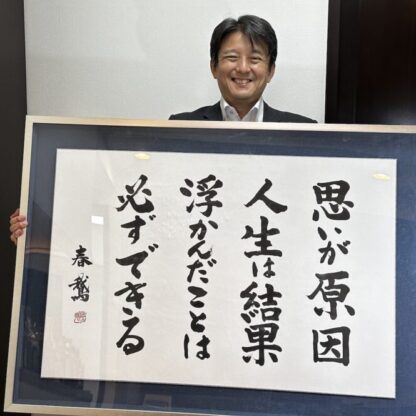 思いが原因
人生は結果
浮かんだことは
必ずできる
春鵞